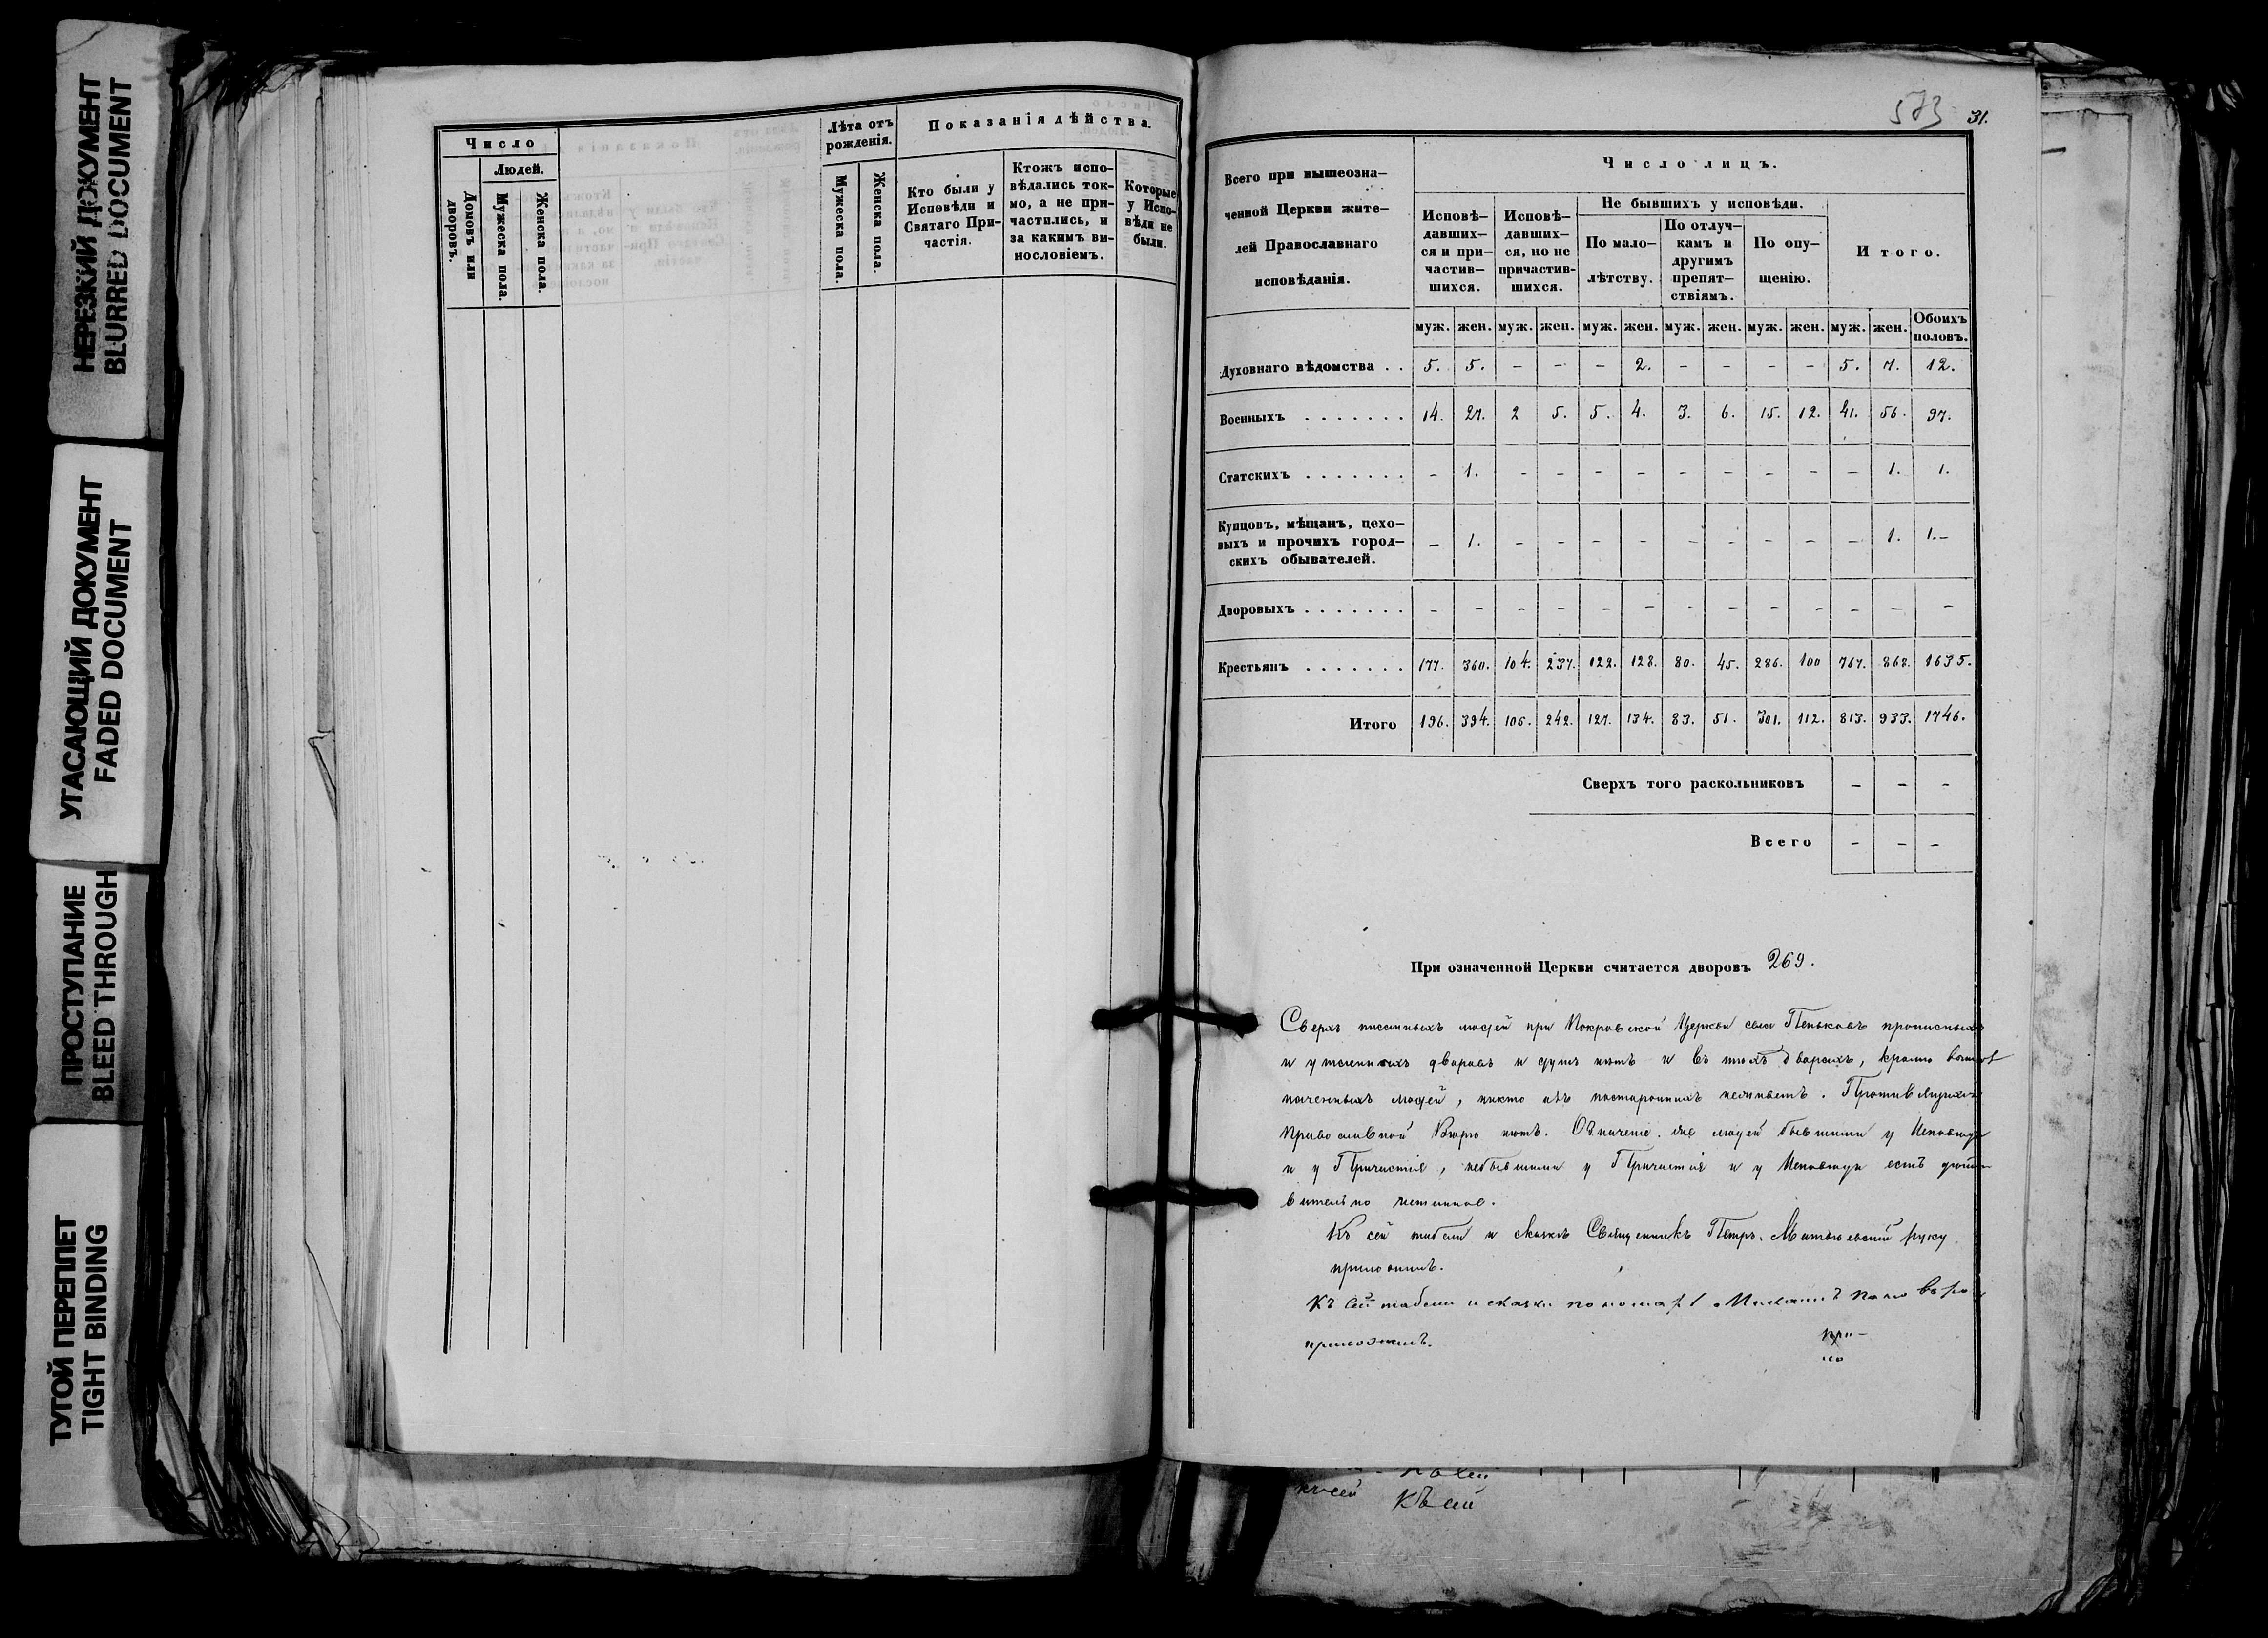 НЕРЕЗКИЙ ДОКУМЕНТ
BLURRED DOCUMENT
УГАСАЮЩИЙ ДОКУМЕНТ
FADED DOCUMENT
ПРОСТУПАНИЕ
BLEED THROUGH
ТУГОЙ ПЕРЕПЛЕТ
TIGHT BINDING
Число
Людей.
Домовъ или дворовъ.
Мужеска пола.
Женска пола.
Лѣта отъ рожденія.
Мужеска пола.
Женска пола.
Показанія дѣйства.
Кто были у Исповѣди и Святаго Причастія.
Ктожъ испо-
вѣдались ток-
мо, а не при-
частились, и
за какимъ ви-
нословіемъ.
Которые
у Испо-
вѣди не
были.
573 31.
Всего при вышеозна-
ченной Церкви жите-
лей Православнаго
исповѣданія.
Число лицъ.
Исповѣ-
давших-
ся и при-
частив-
шихся.
Исповѣ-
давших-
ся, но не
причастив-
шихся.
Не бывшихъ у исповѣди.
По мало-
лѣтству.
По отлуч-
камъ и
другимъ
препят-
ствіямъ.
По опу-
щенію.
Итого.
муж. жен. муж. жен. муж. жен. муж. жен. муж. жен. муж. жен. Обоихъ половъ.
Духовнаго вѣдомства . . 5. 5. – – – 2. – – – – 5. 7. 12.
Военныхъ . . . . . . . 14. 27. 2 5. 5. 4. 3. 6. 15. 12. 41. 56. 97.
Статскихъ . . . . . . . – 1. – – – – – – – – – 1. 1.
Купцовъ, мѣщанъ, цехо-
выхъ и прочихъ город-
скихъ обывателей. – 1. – – – – – – – – – 1. 1.–
Дворовыхъ . . . . . . . – – – – – – – – – – – – –
Крестьянъ . . . . . . . 177. 360. 104. 237. 122. 128. 80. 45. 286. 100 767. 868. 1635.
Итого 196. 394. 106. 242. 127. 134. 83. 51. 301. 112. 813. 933. 1746.
Сверхъ того раскольниковъ – – –
Всего – – –
При означенной Церкви считается дворовъ 269.
Сверхъ писанныхъ людей при Покровской Церкви села Пеньковъ прописныхъ
и утаенныхъ дворовъ и душъ нѣтъ и въ тѣхъ дворахъ, кромѣ
людей, никто изъ постороннихъ неживетъ.
Православной Вѣры нѣтъ. людей бывшими у Исповѣди
и у Причастія, небывшими у Причастія и у Исповѣди есть
вительно истинное.
Къ сей табели и сказкѣ Священникъ Петръ руку
приложилъ.
Къ сей табели и сказки пономарь
приложилъ.
при-
ло
къ сей
къ сей